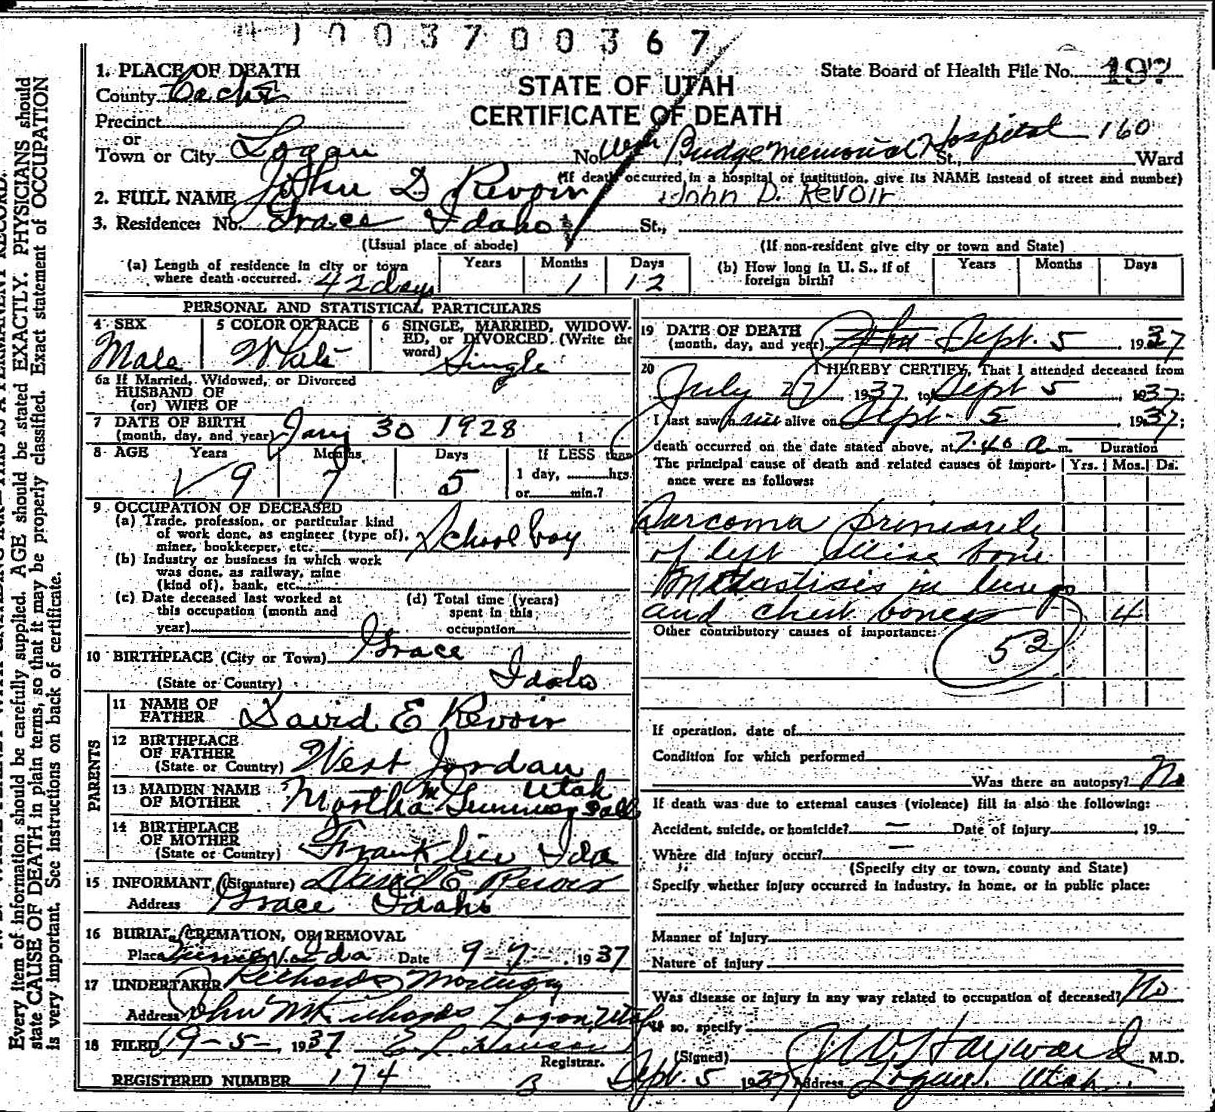 1003700367
1. PLACE OF DEATH
State Board of Health File No. 197
STATE OF UTAH
County Cache
CERTIFICATE OF DEATH
Precinct
or
Town or City Logan No. Budge Memorial Hospital 160 St., Ward
(If death occurred in a hospital or institution, give its NAME instead of street and number)
2. FULL NAME John D Revoir John D. Revoir
3. Residence: No. Grace Idaho St.,
(Usual place of abode) (If non-resident give city or town and State)
(a) Length of residence in city or town where death occurred. 42 days Years Months 1 Days 12
(b) How long in U. S., if of foreign birth? Years Months Days
PERSONAL AND STATISTICAL PARTICULARS
4 SEX Male
5 COLOR OR RACE White
6 SINGLE, MARRIED, WIDOW-
ED, or DIVORCED. (Write the
word) Single
6a If Married, Widowed, or Divorced
HUSBAND OF
(or) WIFE OF
7 DATE OF BIRTH
(month, day, and year) Jany 30 1928
8 AGE Years 9 Months 7 Days 5 If LESS than
1 day, hrs.
or min.?
9 OCCUPATION OF DECEASED
(a) Trade, profession, or particular kind
of work done, as engineer (type of),
miner, bookkeeper, etc. School boy
(b) Industry or business in which work
was done, as railway, mine
(kind of), bank, etc.
(c) Date deceased last worked at
this occupation (month and
year)
(d) Total time (years)
spent in this
occupation
10 BIRTHPLACE (City or Town) Grace
(State or Country) Idaho
PARENTS
11 NAME OF
FATHER David E Revoir
12 BIRTHPLACE
OF FATHER
(State or Country) West Jordan Utah
13 MAIDEN NAME
OF MOTHER Martha M
14 BIRTHPLACE
OF MOTHER
(State or Country) Franklin Ida
15 INFORMANT (Signature) David E. Revoir
Address Grace Idaho
16 BURIAL, CREMATION, OR REMOVAL
Place Ida Date 9-7- 1937
17 UNDERTAKER Richards Mortuary
Address John M Richards Logan, Utah
18 FILED 9-5- 1937 E L Hansen
Registrar.
REGISTERED NUMBER 174
19 DATE OF DEATH
(month, day, and year) Sept. 5 , 1937
20 I HEREBY CERTIFY, That I attended deceased from
July 27 1937 to Sept 5 1937;
I last saw him alive on Sept. 5 1937;
death occurred on the date stated above, at 7.40 a m. Duration
The principal cause of death and related causes of import- Yrs. Mos. Ds.
ance were as follows:
Sarcoma primarily
of left bone
Metastisis in lungs
and chest bones 4
Other contributory causes of importance:
52
If operation, date of
Condition for which performed
Was there an autopsy? No
If death was due to external causes (violence) fill in also the following:
Accident, suicide, or homicide? — Date of injury , 19
Where did injury occur? —
(Specify city or town, county and State)
Specify whether injury occurred in industry, in home, or in public place:
Manner of injury
Nature of injury
Was disease or injury in any way related to occupation of deceased? No
If so, specify
(Signed) J W Hayward M.D.
Sept. 5 1937 Address Logan, Utah.
Every item of information should be carefully supplied. AGE should be stated EXACTLY. PHYSICIANS should
state CAUSE OF DEATH in plain terms, so that it may be properly classified. Exact statement of OCCUPATION
is very important. See instructions on back of certificate.